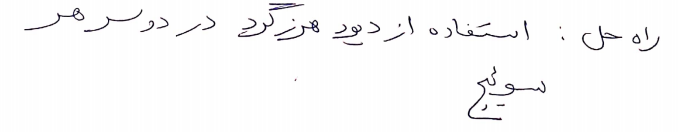 راه حل : استفاده از دیود هرزگرد در دو سر هر
سوئیچ